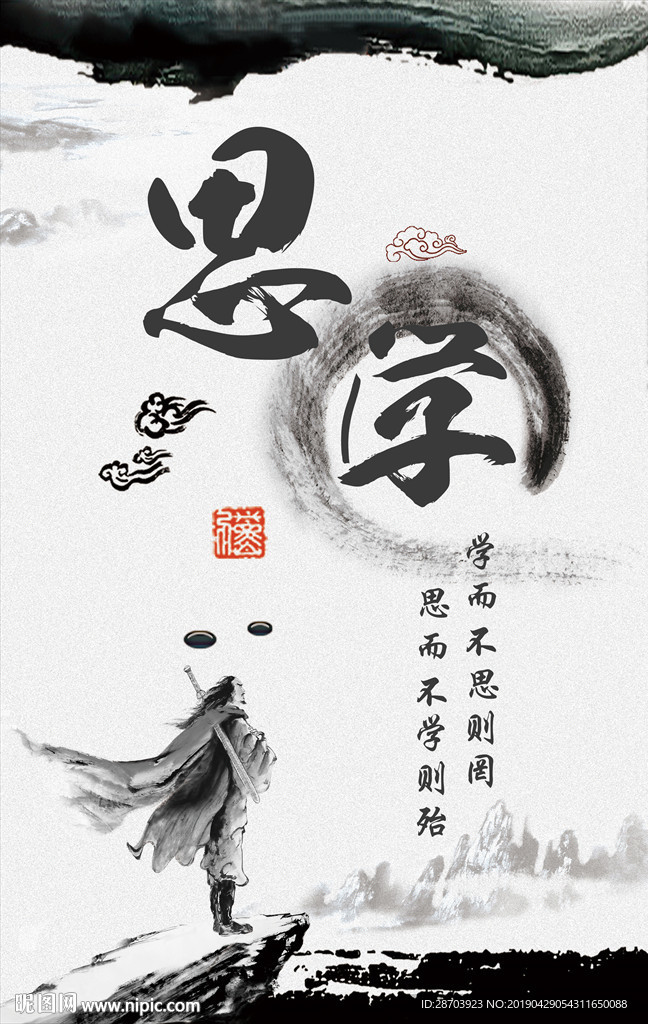 思
学
学而不思则罔
思而不学则殆
昵图网 www.nipic.com
ID:28703923 NO:20190429054311650088